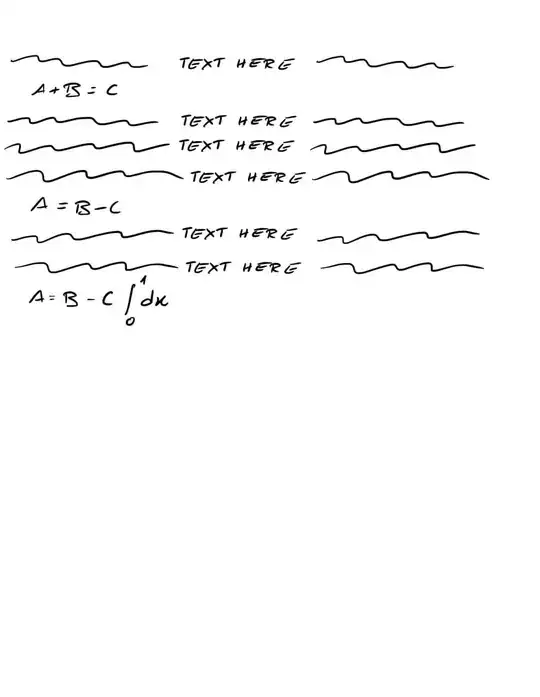 TEXT HERE
A + B = C
TEXT HERE
TEXT HERE
TEXT HERE
A = B - C
TEXT HERE
TEXT HERE
A = B - C ∫₀¹ dx